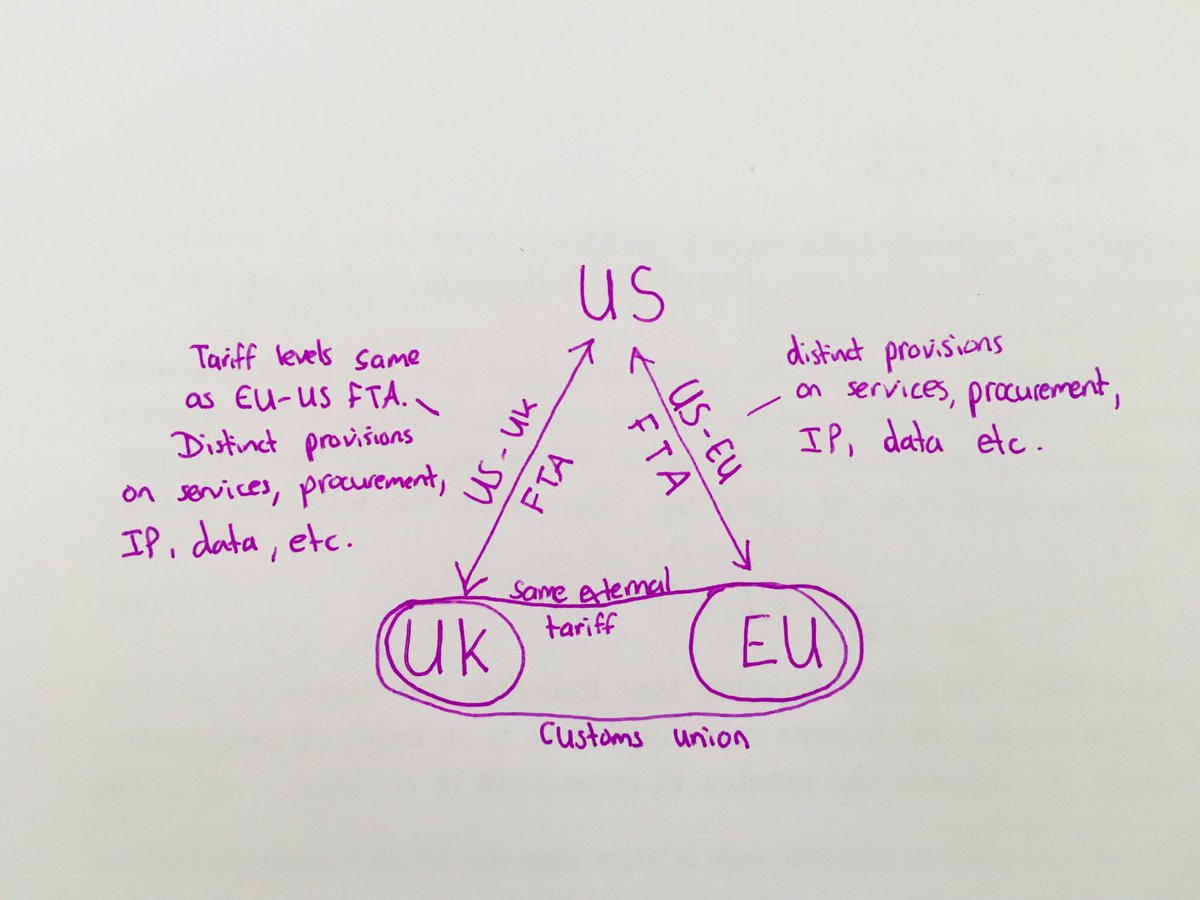 US
Tariff levels same
as EU-US FTA.
Distinct provisions
on services, procurement,
IP, data, etc.
US-UK
FTA
US-EU
FTA
distinct provisions
on services, procurement,
IP, data etc.
same external
tariff
UK
EU
Customs union